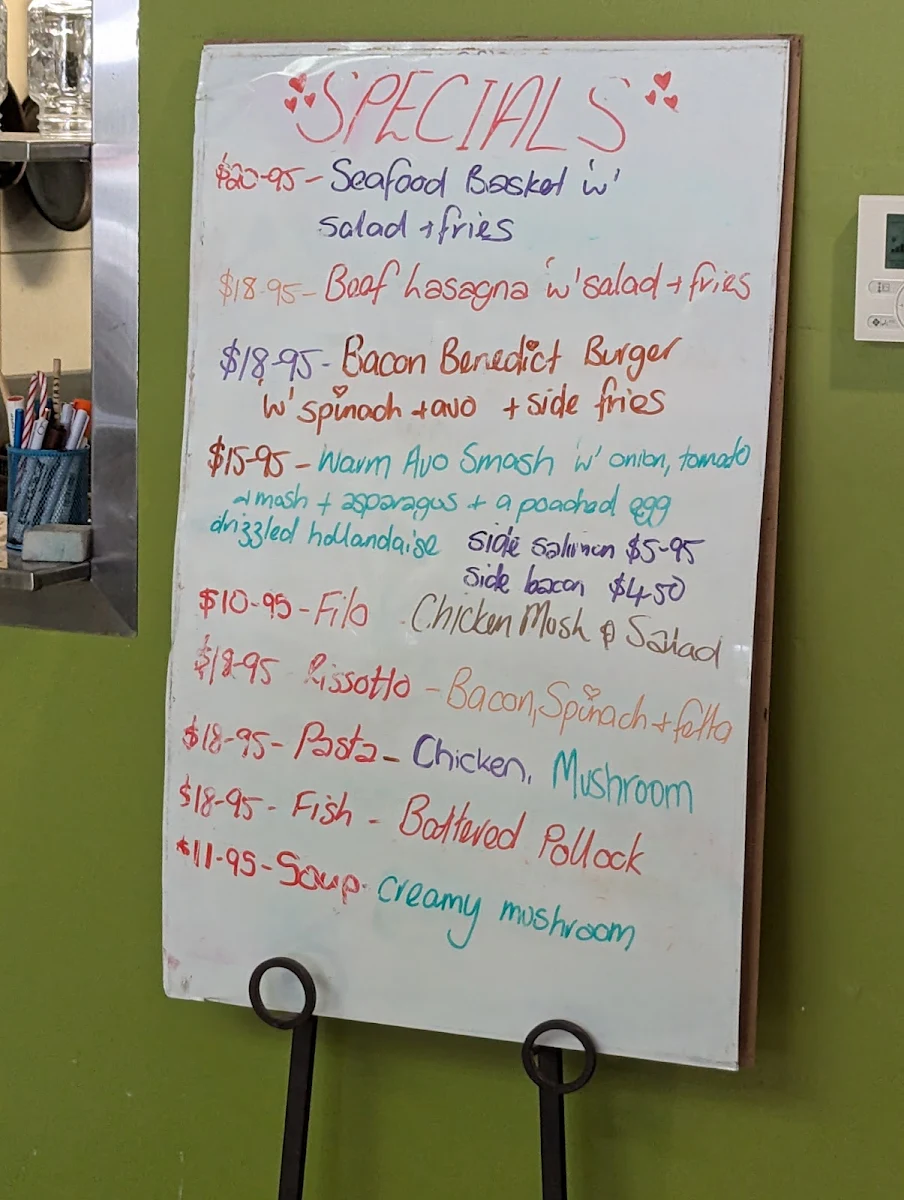 SPECIALS
$20-95 - Seafood Basket w'
salad + fries
$18-95 - Beef Lasagna w' salad + fries
$18-95 - Bacon Benedict Burger
w' spinach + avo + side fries
$15-95 - Warm Avo Smash w' onion, tomato
+ mash + asparagus + a poached egg
drizzled hollandaise side salmon $5-95
side bacon $4-50
$10-95 - Filo Chicken Mash & Salad
$18-95 Rissotto - Bacon, Spinach + fetta
$18-95 - Pasta - Chicken, Mushroom
$18-95 - Fish - Battered Pollock
$11-95 - Soup - creamy mushroom